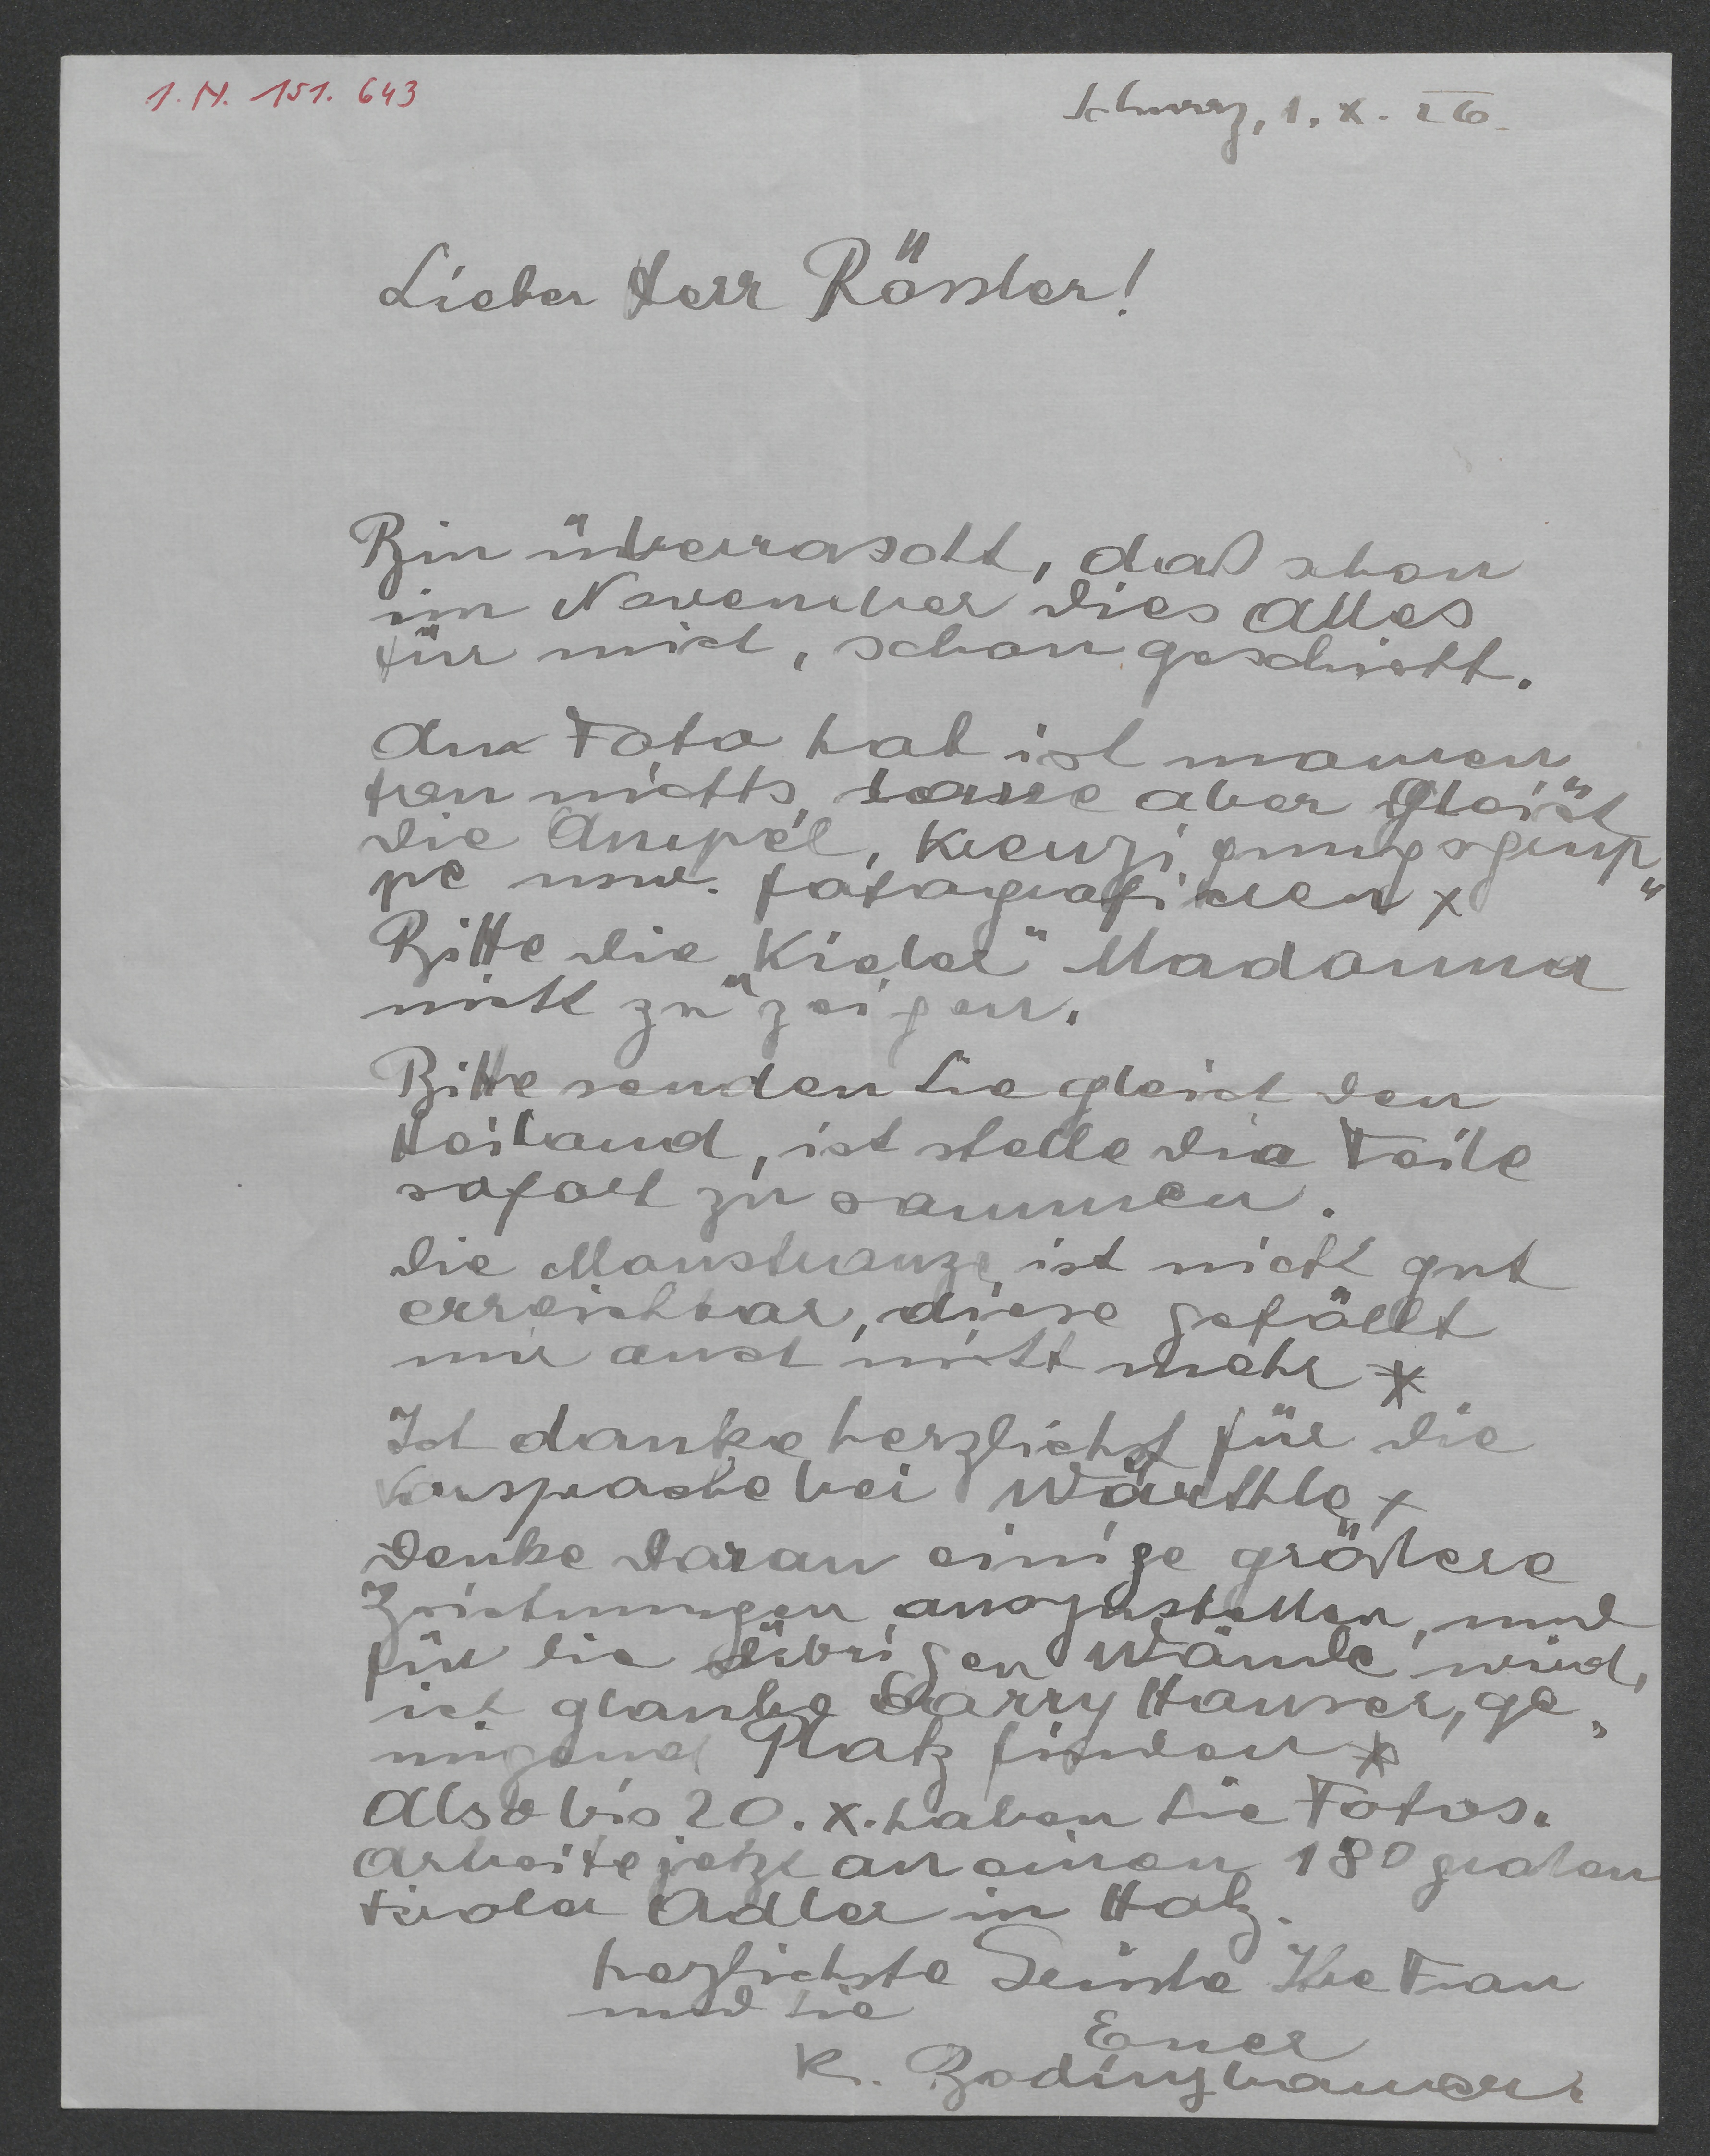 I. N. 151.643
Schwaz, 1. X. 26.
Lieber Herr Rössler!
Bin überrascht, daß schon
im November dies Alles
für mich, schon geschieht.
An Foto hab ich momen
tan nichts, lasse aber gleich
die Ampel, Kreuzigungsgrup„
pe usw. fotografieren ×
Bitte die „Kiebel" Madonna
nicht zu zeigen.
Bitte senden Sie gleich den
Heiland, ich stelle die Teile
sofort zusammen.
Die Monstranze ist nicht gut
erreichbar, diese gefällt
mir auch nicht mehr *
Ich danke herzlichst für die
Vorsprache bei Würthle ×
Denke daran einige größere
Zeichnungen auszustellen, und
für die übrigen Wände wird,
ich glaube Carry Hauser, ge„
nügend Platz finden *
Also bis 20. X. haben Sie Fotos.
Arbeite jetzt an einen 180 großen
Tiroler Adler in Holz.
herzlichste Grüße Ihre Frau
und Sie
Euer
R. Bodingbauer.